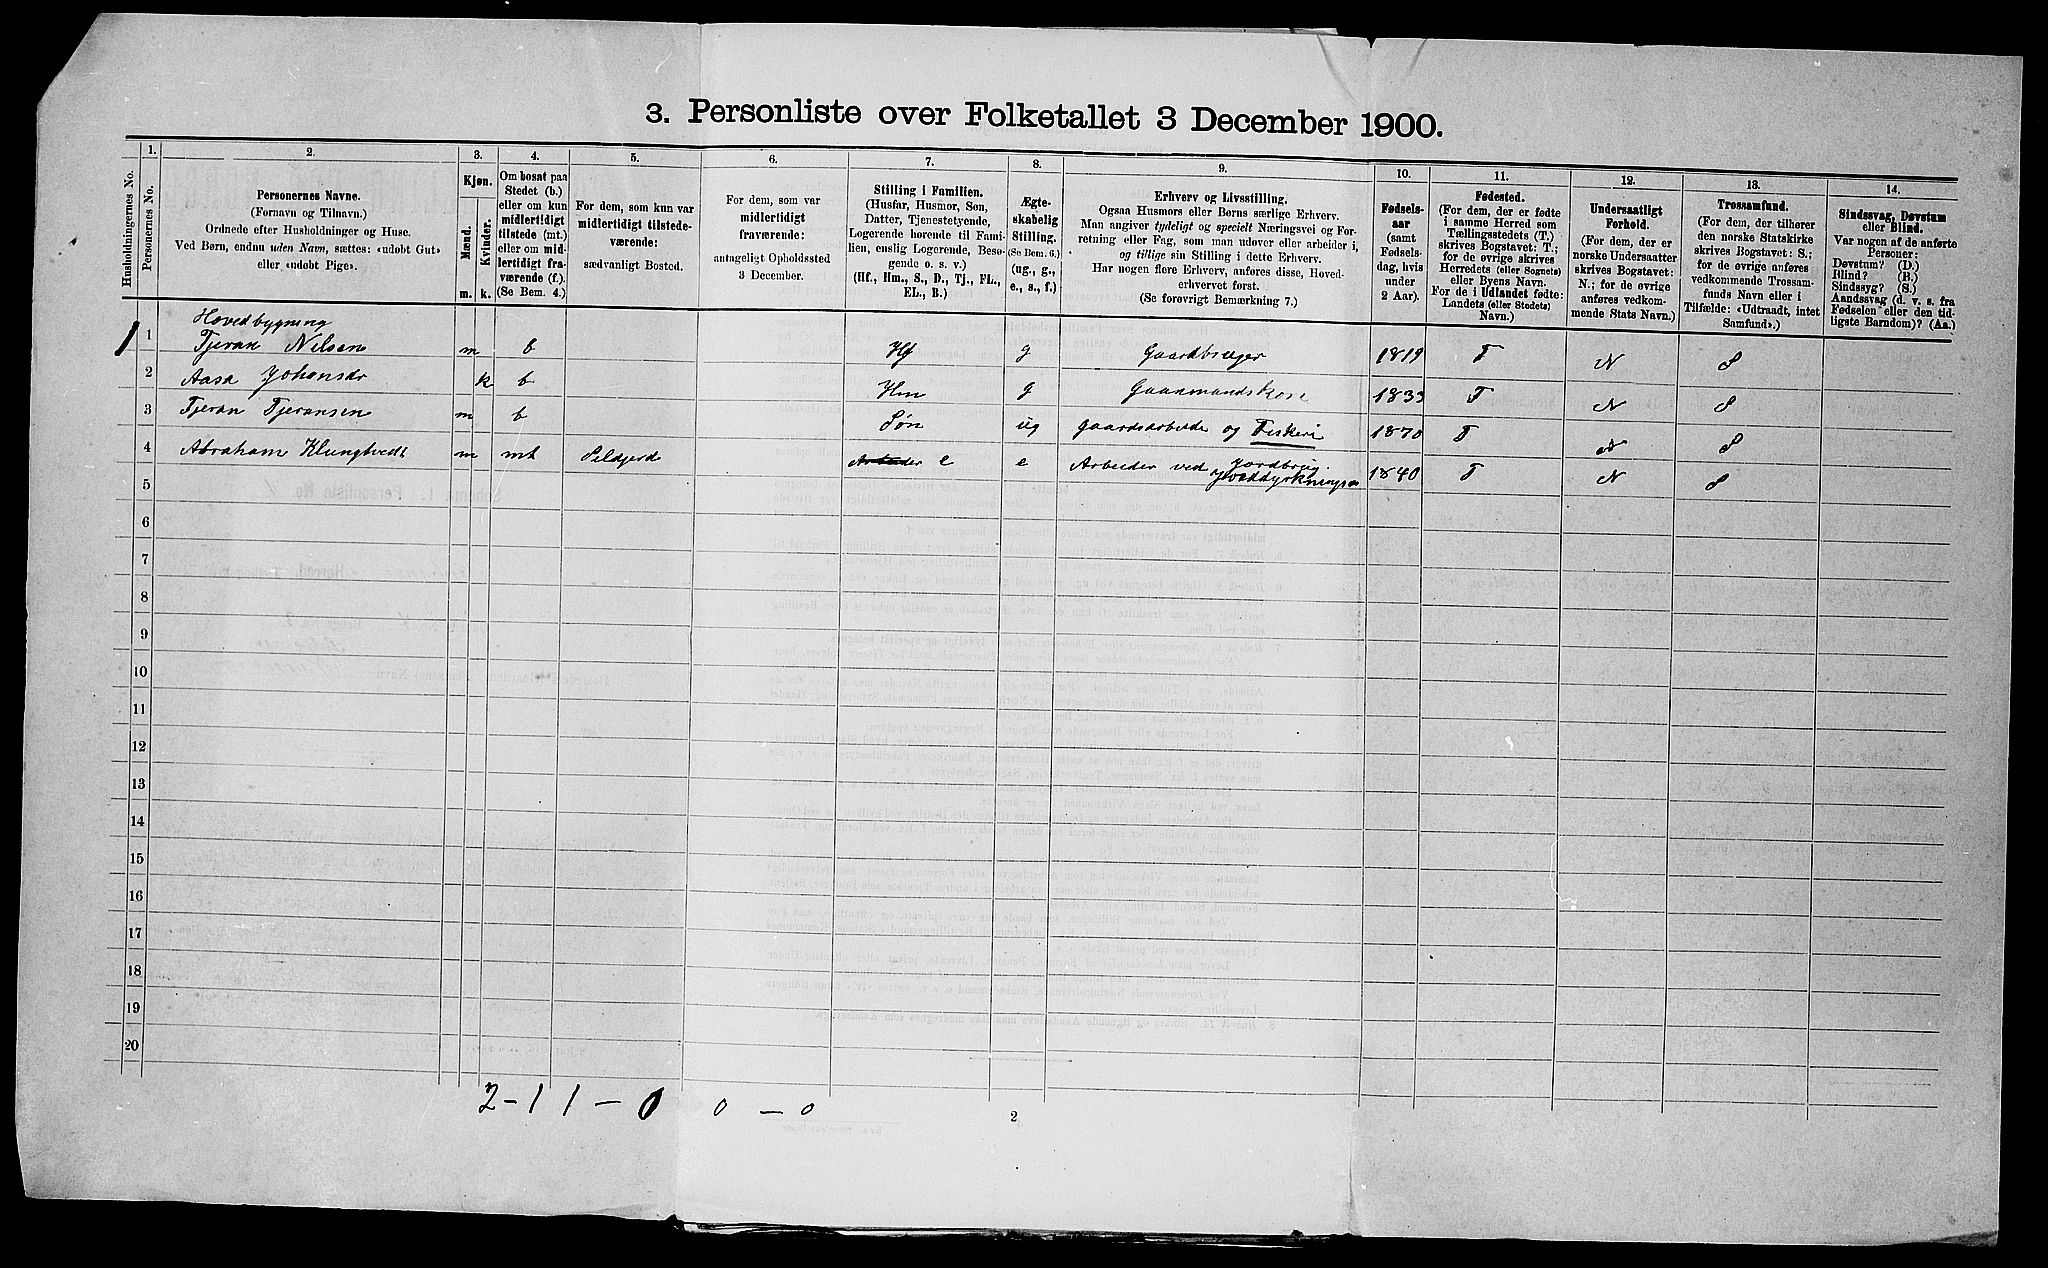 3. Personliste over Folketallet 3 December 1900.
Husholdningernes No.
1.
Personernes No.
2.
Personernes Navne.
(Fornavn og Tilnavn.)
Ordnede efter Husholdninger og Huse.
Ved Børn, endnu uden Navn, sættes: «udøbt Gut»
eller «udøbt Pige».
3.
Kjøn.
Mænd.
Kvinder.
m. k.
4.
Om bosat paa
Stedet (b.)
eller om kun
midlertidigt
tilstede (mt.)
eller om mid-
lertidigt fra-
værende (f.)
(Se Bem. 4.)
5.
For dem, som kun var
midlertidigt tilstede-
værende:
sædvanligt Bosted.
6.
For dem, som var
midlertidigt
fraværende:
antageligt Opholdssted
3 December.
7.
Stilling i Familien.
(Husfar, Husmor, Søn,
Datter, Tjenestetyende,
Logerende hørende til Fami-
lien, enslig Logerende, Besø-
gende o. s. v.)
(Hf., Hm., S., D., Tj., FL.,
EL., B.)
8.
Ægte-
skabelig
Stilling.
(Se Bem. 6.)
(ug., g.,
e., s., f.)
9.
Erhverv og Livsstilling.
Ogsaa Husmors eller Børns særlige Erhverv.
Man angiver tydeligt og specielt Næringsvei og For-
retning eller Fag, som man udover eller arbeider i,
og tillige sin Stilling i dette Erhverv.
Har nogen flere Erhverv, anføres disse, Hoved-
erhvervet først.
(Se forøvrigt Bemærkning 7.)
10.
Fødsels-
aar
(samt
Fødsels-
dag, hvis
under
2 Aar).
11.
Fødested.
(For dem, der er fødte
i samme Herred som
Tællingsstedets (T.)
skrives Bogstavet: T.;
for de øvrige skrives
Herredets (eller Sognets)
eller Byens Navn.
For de i Udlandet fødte:
Landets (eller Stedets)
Navn.)
12.
Undersaatligt
Forhold.
(For dem, der er
norske Undersaatter
skrives Bogstavet:
N.; for de øvrige
anføres vedkom-
mende Stats Navn.)
13.
Trossamfund.
(For dem, der tilhører
den norske Statskirke
skrives Bogstavet: S.;
for de øvrige anføres
vedkommende Trossam-
funds Navn eller i
Tilfælde: «Udtraadt, intet
Samfund».)
14.
Sindssvag, Døvstum
eller Blind.
Var nogen af de anførte
Personer:
Døvstum? (D.)
Blind? (B.)
Sindssyg? (S.)
Aandssvag (d. v. s. fra
Fødselen eller den tid-
ligste Barndom)? (Aa.)
Hovedbygning
1 1 Tjeran Nilsen m b Hf g Gaardbruger 1819 T N S
2 Aasa Johansdr k b Hm g Gaarmandskone 1833 T N S
3 Tjeran Tjeransen m b Søn ug gaardsarbeide og Fiskeri 1870 T N S
4 Abraham Klungtvedt m mt Sildjord Arbeider e e Arbeider ved Jordbrug. 1840 T N S
5
6
7
8
9
10
11
12
13
14
15
16
17
18
19
20
2-11-0 0-0
2